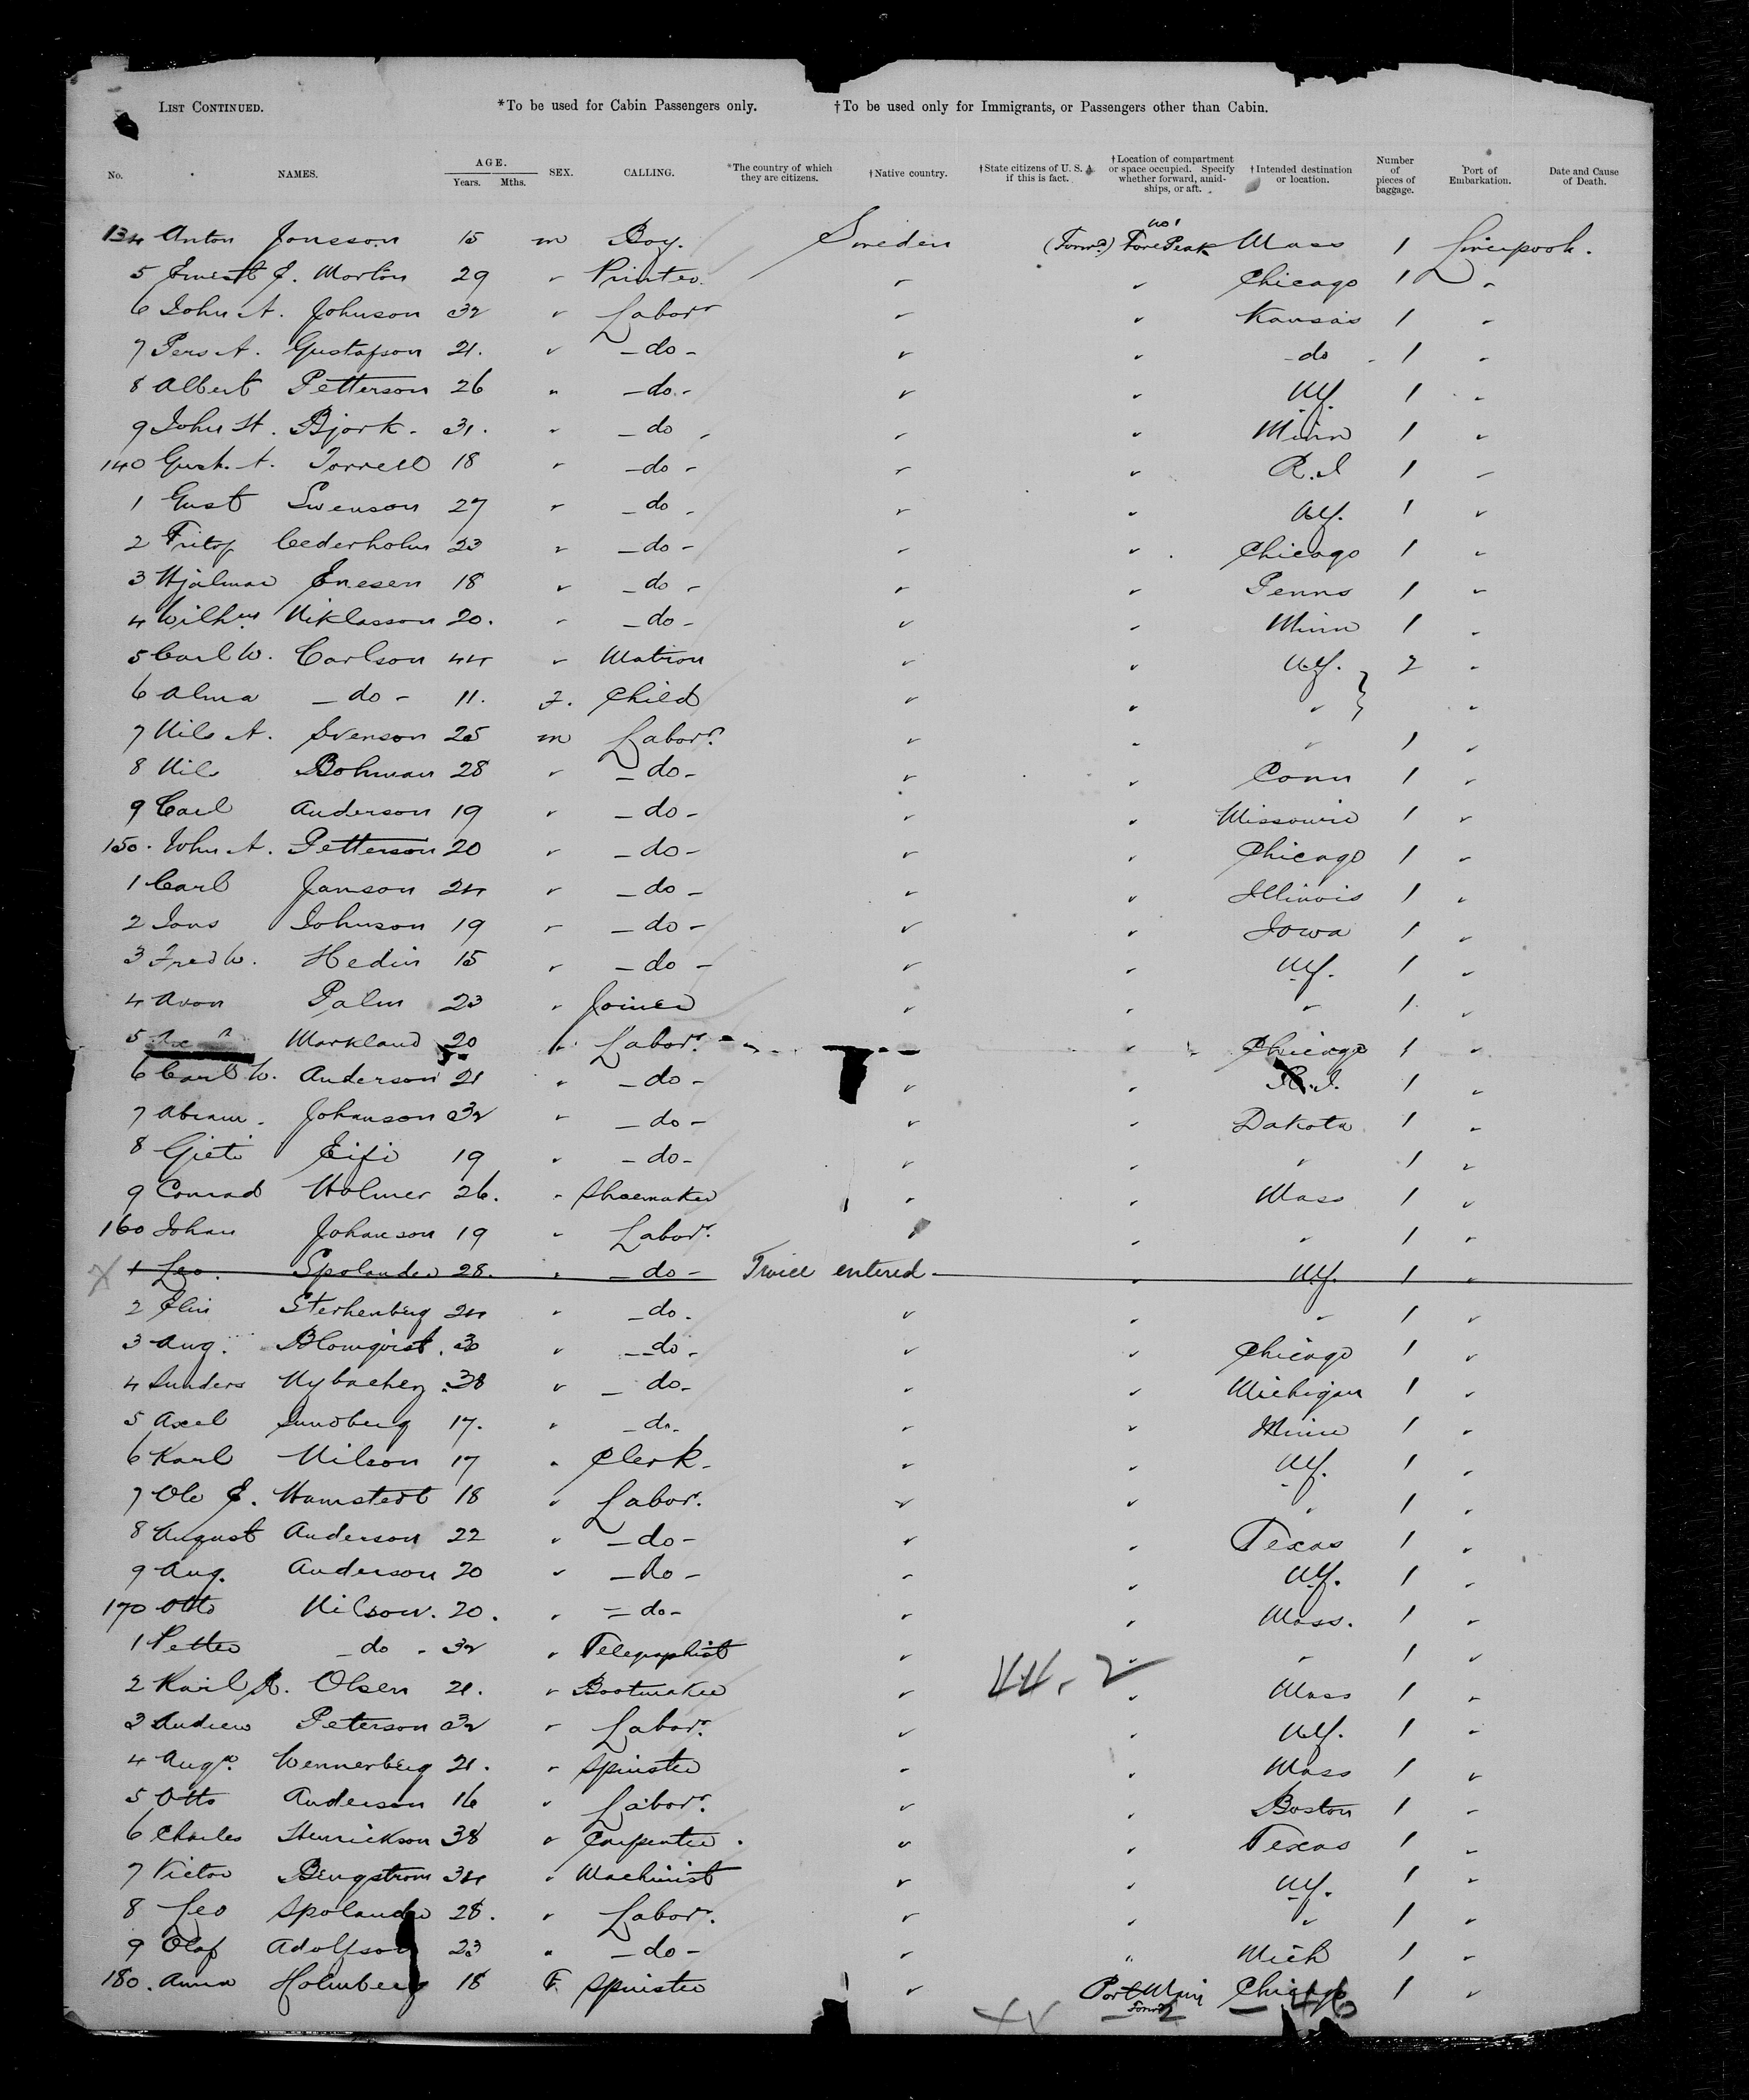 LIST CONTINUED. *To be used for Cabin Passengers only. †To be used only for Immigrants, or Passengers other than Cabin.
No. NAMES. AGE. Years. Mths. SEX. CALLING. *The country of which they are citizens. †Native country. †State citizens of U. S. A. if this is fact. †Location of compartment or space occupied. Specify whether forward, amidships, or aft. †Intended destination or location. Number of pieces of baggage. Port of Embarkation. Date and Cause of Death.
134 Anton Jonsson 15 m Boy. Sweden (Forwd.) No 1 Fore Peak Mass 1 Liverpool.
5 Ernest E. Morton 29 " Printer. " " Chicago 1 "
6 John A. Johnson 32 " Labor " " Kansas 1 "
7 Pers A. Gustafson 21. " - do - " " - do - 1 "
8 Albert Petterson 26 " - do - " " NY. 1 "
9 John H. Bjork 31. " - do - " " Minn 1 "
140 Gust. A. Torrell 18 " - do - " " R.I 1 "
1 Gust Swenson 27 " - do - " " NY. 1 "
2 Fritof Cederholm 23 " - do - " " Chicago 1 "
3 Hjalmar Enesen 18 " - do - " " Penns 1 "
4 Wilhm Niklasson 20. " - do - " " Minn 1 "
5 Carl W. Carlson 44 " Matron " " NY. 2 "
6 Alma - do - 11. F. Child " " " "
7 Nils A. Svenson 25 m Labor. " " " 1 "
8 Nils Bohman 28 " - do - " " Conn 1 "
9 Carl Anderson 19 " - do - " " Missouri 1 "
150. John A. Petterson 20 " - do - " " Chicago 1 "
1 Carl Janson 24 " - do - " " Illinois 1 "
2 Jons Johnson 19 " - do - " " Iowa 1 "
3 Fred W. Hedin 15 " - do - " " NY. 1 "
4 Aron Palm 23 " Joiner " " " 1 "
5 Markland 20 " Labor. " Chicago 1 "
6 Carl W. Anderson 21 " - do - " " R.I. 1 "
7 Abram. Johanson 32 " - do - " " Dakota 1 "
8 19 " - do - " " " 1 "
9 Conrad Holmer 26. " Shoemaker " " Mass 1 "
160 Johan Johanson 19 " Labor. " " " 1 "
1 Leo. Spolander 28. " - do - Twice entered - " NY. 1 "
2 Elin Sterkenberg 24 " - do. " " " 1 "
3 Aug. Blomqvist. 30 " - do - " " Chicago 1 "
4 38 " - do - " " Michigan 1 "
5 Axel Sundberg 17. " - do. " " Minn 1 "
6 Karl Nilson 17 " Clerk. " " NY. 1 "
7 Ole E. Hamstedt 18 " Labor. " " " 1 "
8 August Anderson 22 " - do - " " Texas 1 "
9 Aug. Anderson 20 " - do - " " NY. 1 "
170 Otto Nilson. 20. " - do - " " Mass. 1 "
1 Petter - do - 32 " Telegraphist " " " 1 "
44. 2
2 Karl R. Olsen 21. " Bootmaker " " Mass 1 "
3 Andrew Peterson 32 " Labor. " " NY. 1 "
4 Auga. Wennerberg 21. " Spinster " " Mass 1 "
5 Otto Anderson 16 " Labor. " " Boston 1 "
6 Charles Henrickson 38 " Carpenter. " " Texas 1 "
7 Victor Bengstrom 34 " Machinist " " NY. 1 "
8 Leo Spolander 28. " Labor. " " " 1 "
9 Olaf Adolfson 23 " - do - " " Mich 1 "
180. Anna Holmberg 18 F. Spinster " Chicago 1 "